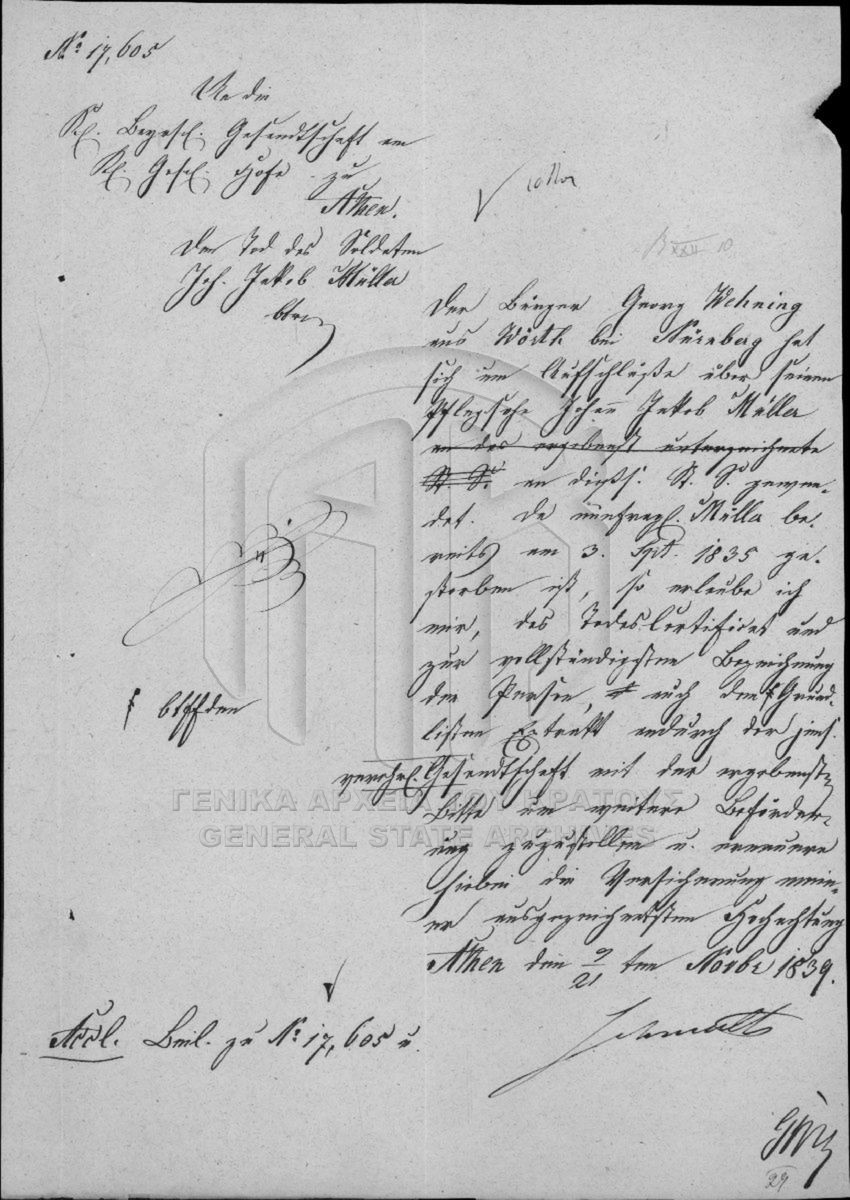 No 17,605
An die
Kgl. Bayrsch. Gesandtschaft am
Kl. Gsch. Hofe zu
Athen.
Den Tod des Soldaten
Joh. Jakob Müller
btr.
Der Bürger Georg Wehning
aus Wörth bei Nürnberg hat
sich um Aufschlüße über seinen
Pflegsohn Johann Jakob Müller
an das ergebenst unterzeichnete
St. S. an dießs. St. S. gewen-
det. Da nun Müller be-
reits am 3. Spt. 1835 ge-
storben ist, so erlaube ich
mir, das Todes Certificat und
zur vollständigsten Bezeichnung
der Person, auch den Grund-
listen Extrakt andurch der jens.
verehrl. Gesandtschaft mit der ergebensten
Bitte um weitere Beförder-
ung zuzustellen u. erneuere
hiebei die Versicherung mein-
er ausgezeichnetsten Hochachtung
Athen den 9/21 ten Novbr 1839.
Schmaltz
btffden
Accl. Beil. zu No 17,605 u.
ΓΕΝΙΚΑ ΑΡΧΕΙΑ ΤΟΥ ΚΡΑΤΟΥΣ
GENERAL STATE ARCHIVES
29